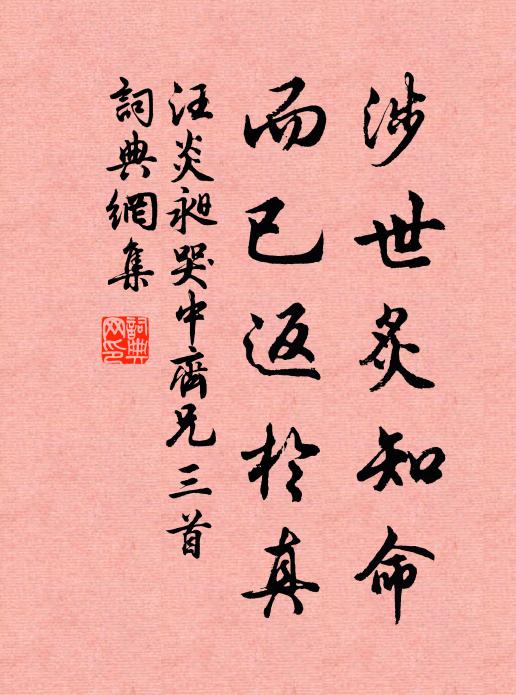 涉世炙知命
而已返於真
汪炎昶哭中齋兄三首
詞典網集
詞典
网印